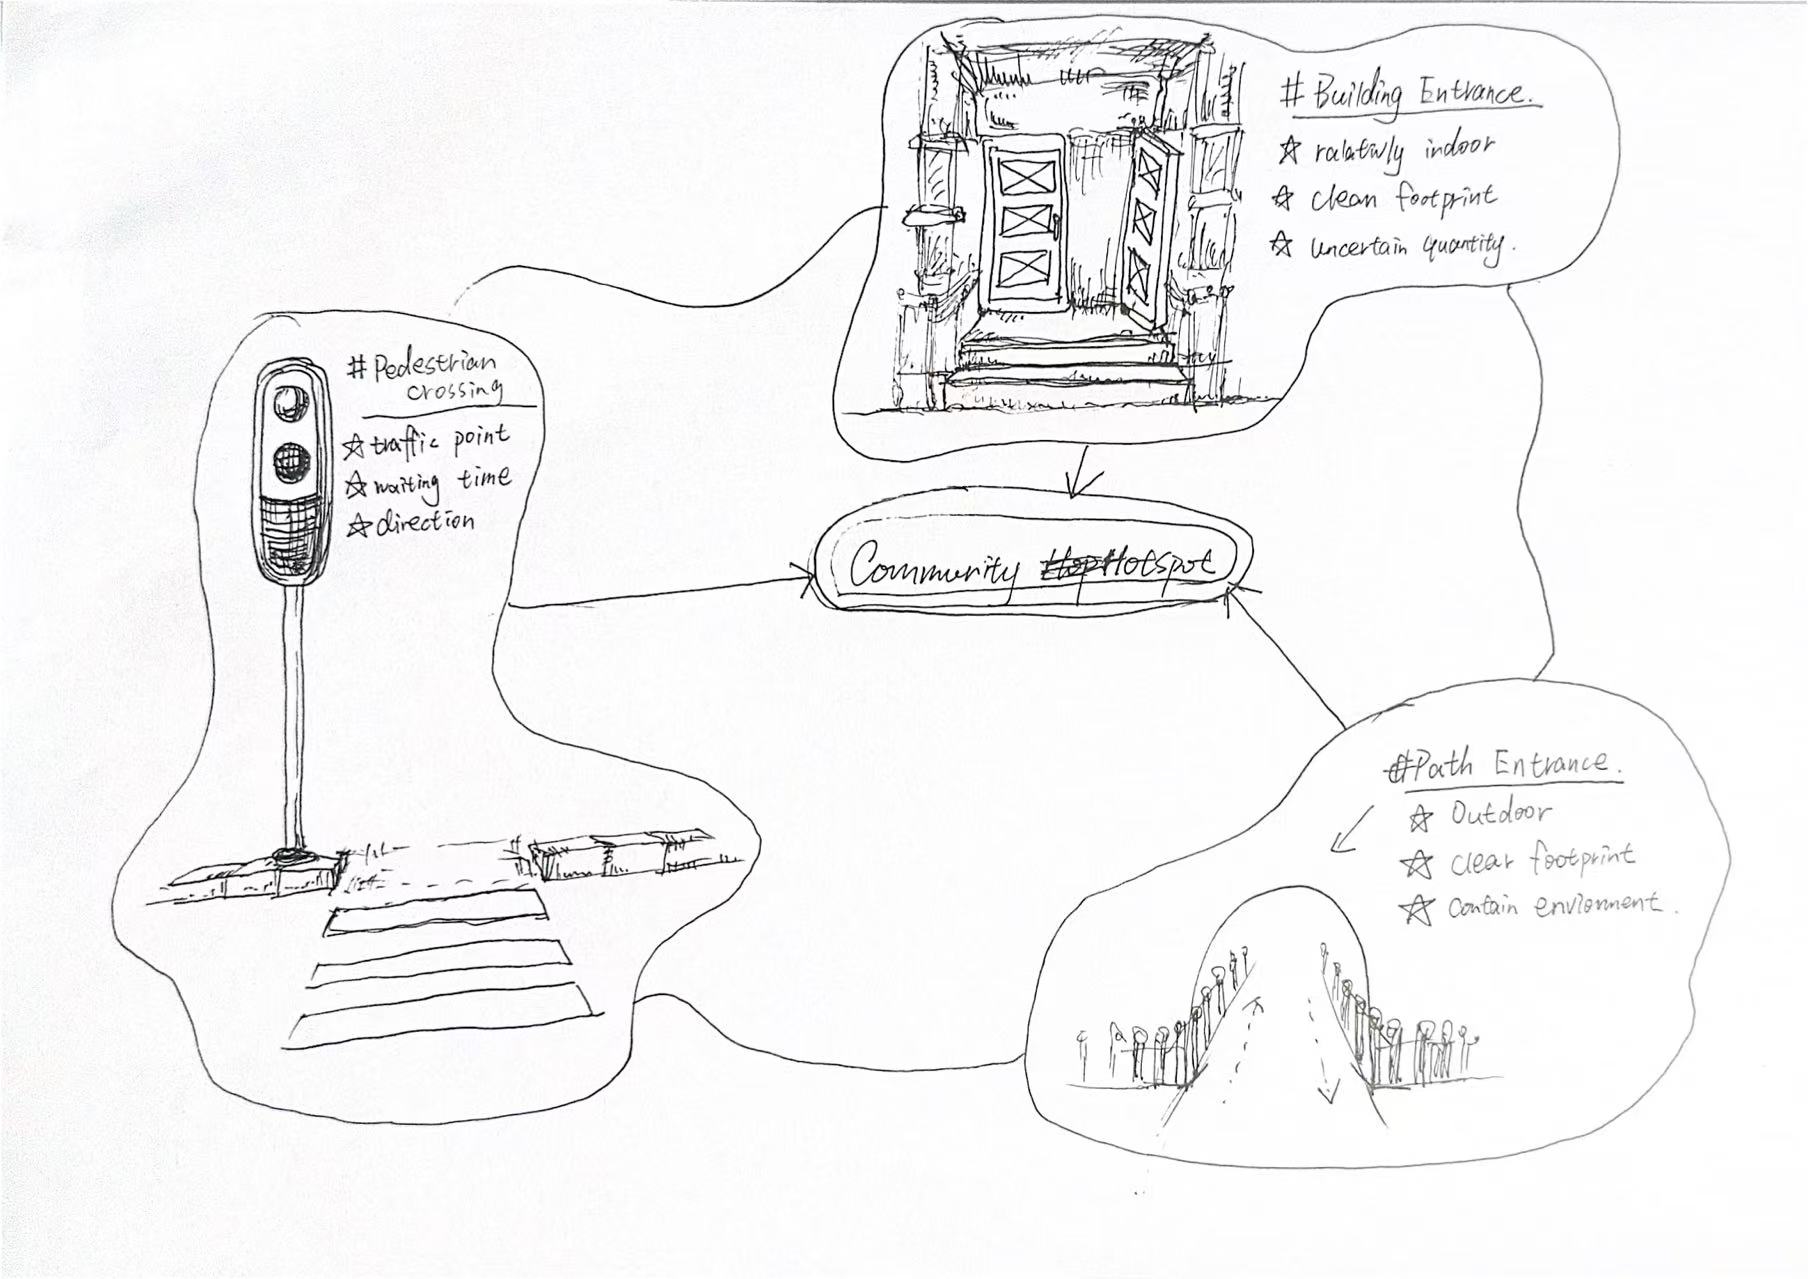 # Building Entrance.
☆ ralatiwly indoor
☆ clean footprint
☆ uncertain quantity.
# Pedestrian
crossing
☆ traffic point
☆ waiting time
☆ direction
Community Hotspot
# Path Entrance.
☆ Outdoor
☆ clear footprint
☆ contain envionment.